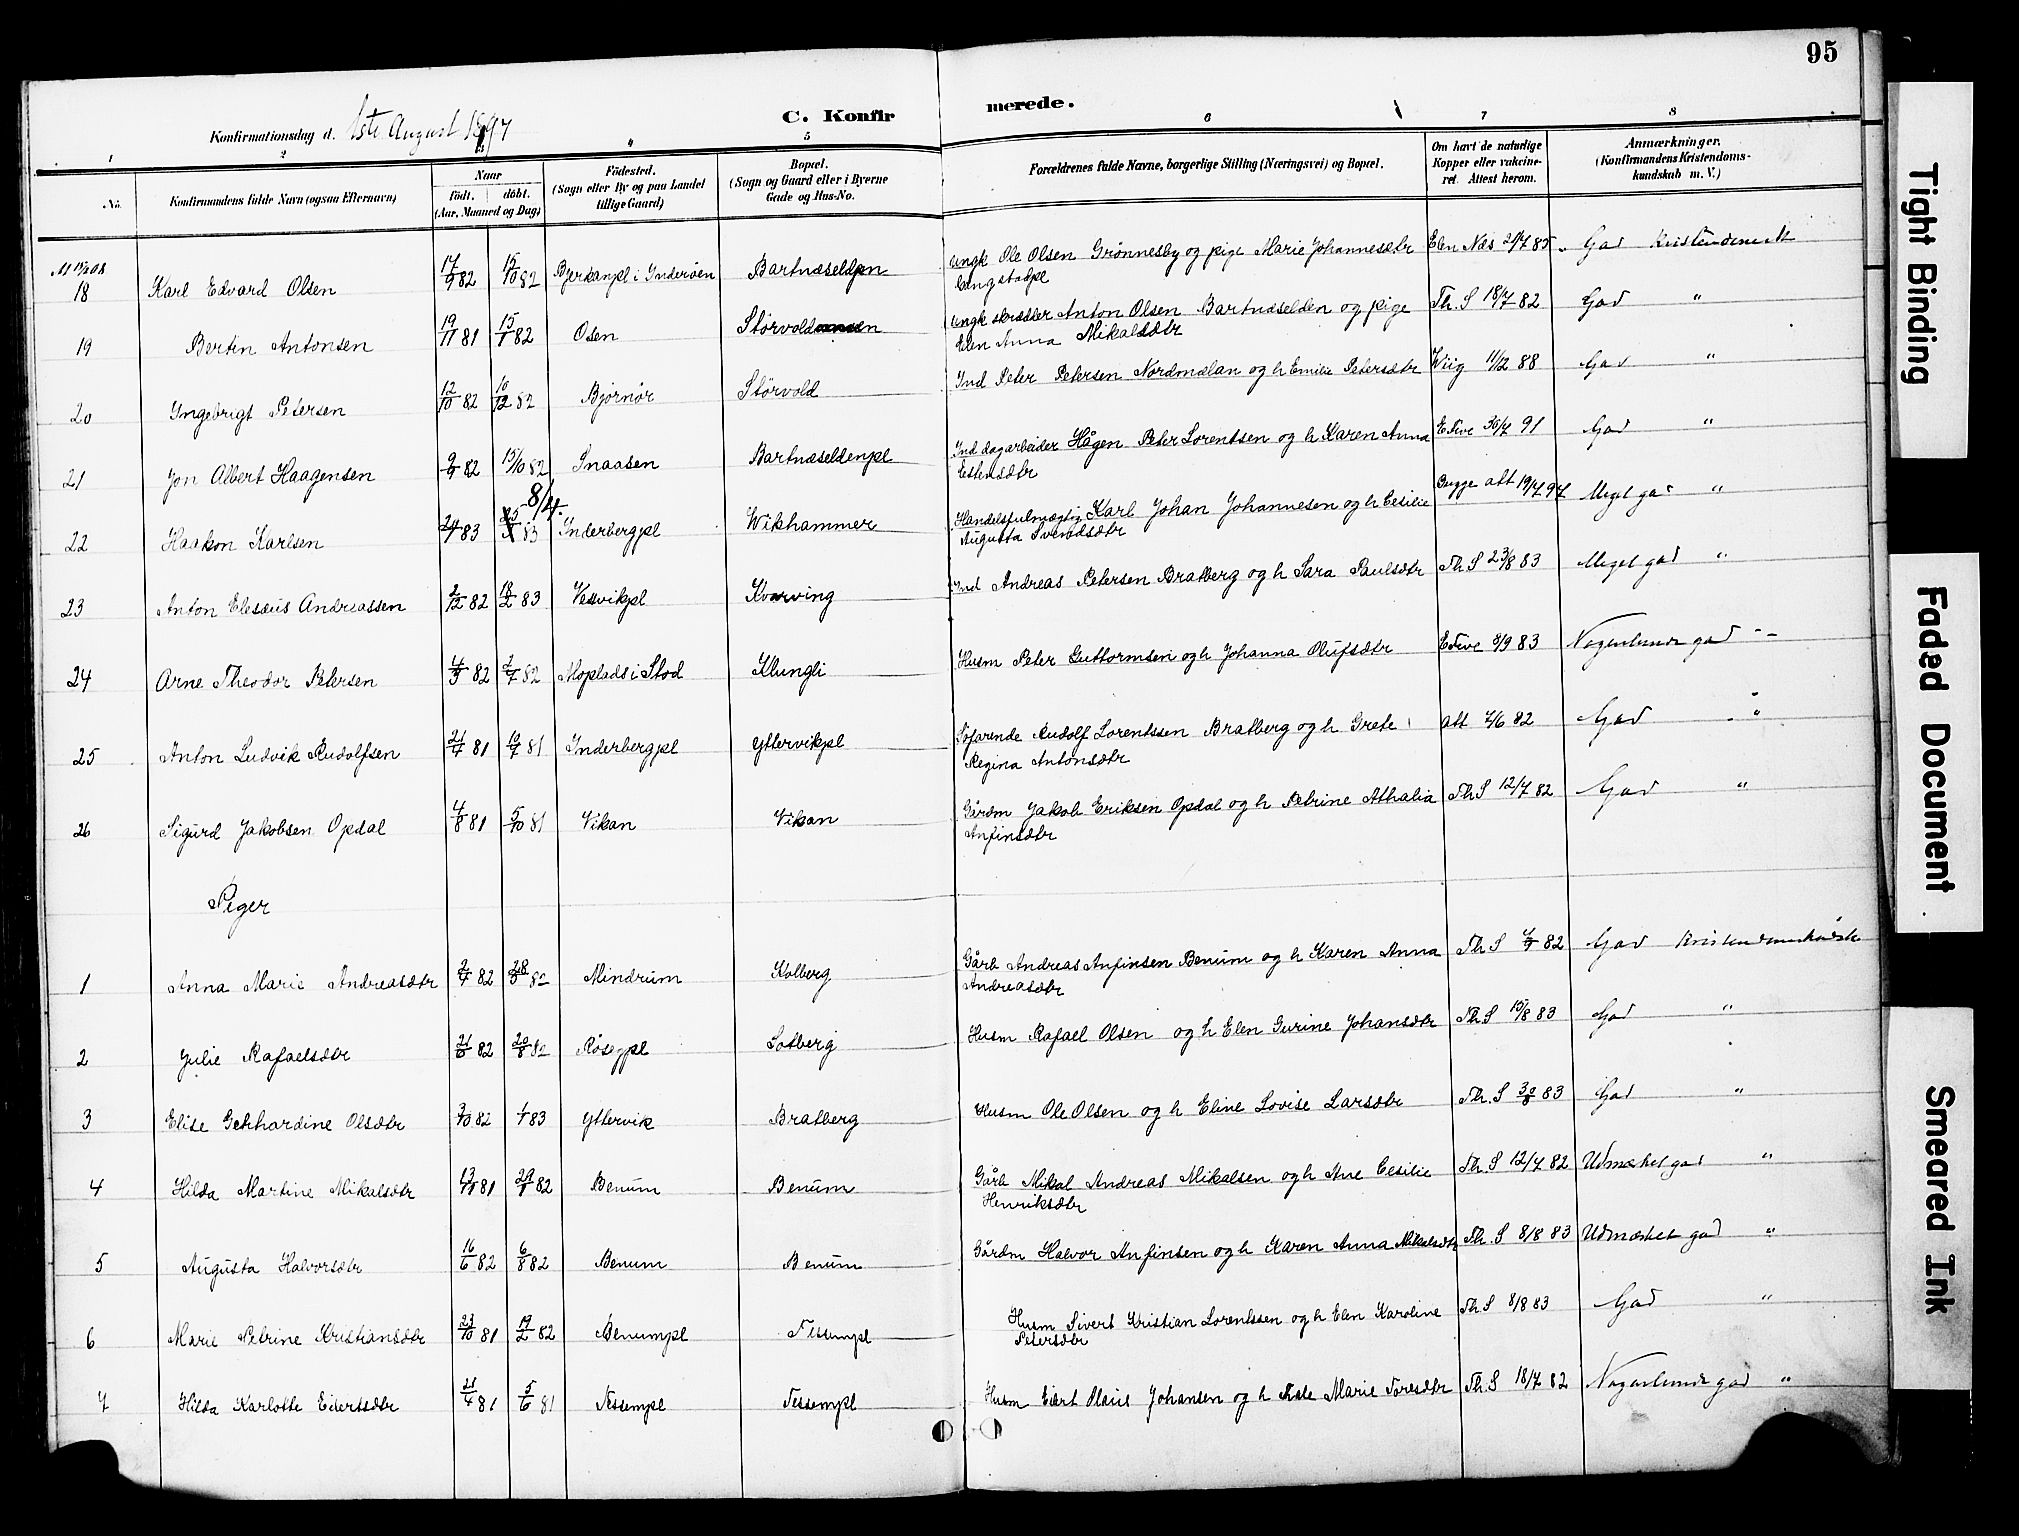 95
C. Konfirmerede.
Konfirmationsdag d. 1ste August 1897
1 2 3 4 5 6 7 8
No. Konfirmandens fulde Navn (ogsaa Efternavn) Naar födt. döbt. (Aar, Maaned og Dag) Födested. (Sogn eller By og paa Landet tillige Gaard) Bopæl. (Sogn og Gaard eller i Byerne Gade og Hus-No.) Forældrenes fulde Navne, borgerlige Stilling (Næringsvei) og Bopæl. Om havt de naturlige Kopper eller vakcineret. Attest herom. Anmærkninger. (Konfirmandens Kristendomskundskab m. V.)
18 Karl Edvard Olsen 17/9 82 15/10 82 Bjerkanpl i Inderöen Bartnæseldpn ungk Ole Olsen Grönnesby og pige Marie Johannesdtr Langstadpl Elen Næs 85 God
19 Bertin Antonsen 19/11 81 15/1 82 Osen Störvold ungk skræder Anton Olsen Bartnæselden og pige Elen Anna Mikalsdtr Th. S 18/7 82 God "
20 Ingebrigt Petersen 12/10 82 10/12 82 Björnör Störvold Ind Peter Petersen Nordmælan og h Emilie Petersdtr Wiig 11/12 88 God "
21 Jon Albert Haagensen 9/9 82 15/10 82 Snaasen Bartnæseldenpl Ind dagarbeider Hågen Peter Lorentsen og h Karen Anna Estensdtr 30/7 91 God "
22 Haakon Karlsen 83 8/4. 83 Inderbergpl Wikhammer Handelsfulmægtig Karl Johan Johannesen og h Cesilie Augusta Svendsdtr Bugge att 19/7 97 Meget god "
23 Anton Elesæus Andreassen 2/12 82 18/2 83 Vesvikpl Kvarving Ind Andreas Petersen Bratberg og h Sara Paulsdtr Th. S 23/8 83 Meget god "
24 Arne Theodor Petersen 4/3 82 2/7 82 Moplads i Stod Klungli Husm Peter Guttormsen og h Johanna Olufsdtr 8/9 83 Nogenlunde god "
25 Anton Ludvik Rudolfsen 21/4 81 10/7 81 Inderbergpl Yttervikpl Söfarende Rudolf Lorentssen Bratberg og h Grete Regina Antonsdtr att 7/6 82 God "
26 Sigurd Jakobsen Opdal 4/8 81 5/10 81 Vikan Vikan Gårdm Jakob Eriksen Opdal og h Petrine Athalia Anfinsdtr Th S 12/7 82 God "
Piger
1 Anna Marie Andreasdtr 2/4 82 82 Mindrum Kolberg Gårb Andreas Anfinsen Benum og h Karen Anna Andreasdtr Th S 82 God
2 Julie Rafaelsdtr 82 20/8 82 Rösegpl Lotberg Husm Rafael Olsen og h Elen Gurine Johansdtr Th S 15/8 83 God "
3 Elise Gehhardine Olsdtr 2/10 82 1/1 83 Yttervik Bratberg Husm Ole Olsen og h Eline Lovise Larsdtr Th. S 83 God "
4 Hilda Martine Mikalsdtr 13/11 81 29/1 82 Benum Benum Gårb Mikal Andreas Mikalsen og h Ane Cesilie Henriksdtr Th. S 12/7 82 Udmærket god "
5 Augusta Halvorsdtr 16/6 82 6/8 82 Benum Benum Gårdm Halvor Anfinsen og h Karen Anna Mikalsdtr Th. S 8/8 83 Udmærket god "
6 Marie Petrine Kristiansdtr 23/10 81 19/2 82 Benumpl Tessempl Husm Sivert Kristian Lorentssen og h Elen Karoline Petersdtr Th S 8/8 83 God "
7 Hilda Karlotte Eiertsdtr 21/4 81 5/6 81 Tessempl Tessempl Husm Eiert Olaus Johansen og h Marie Toresdtr Th. S 18/7 82 Nogenlunde god "
Tight Binding
Faded Document
Smeared Ink